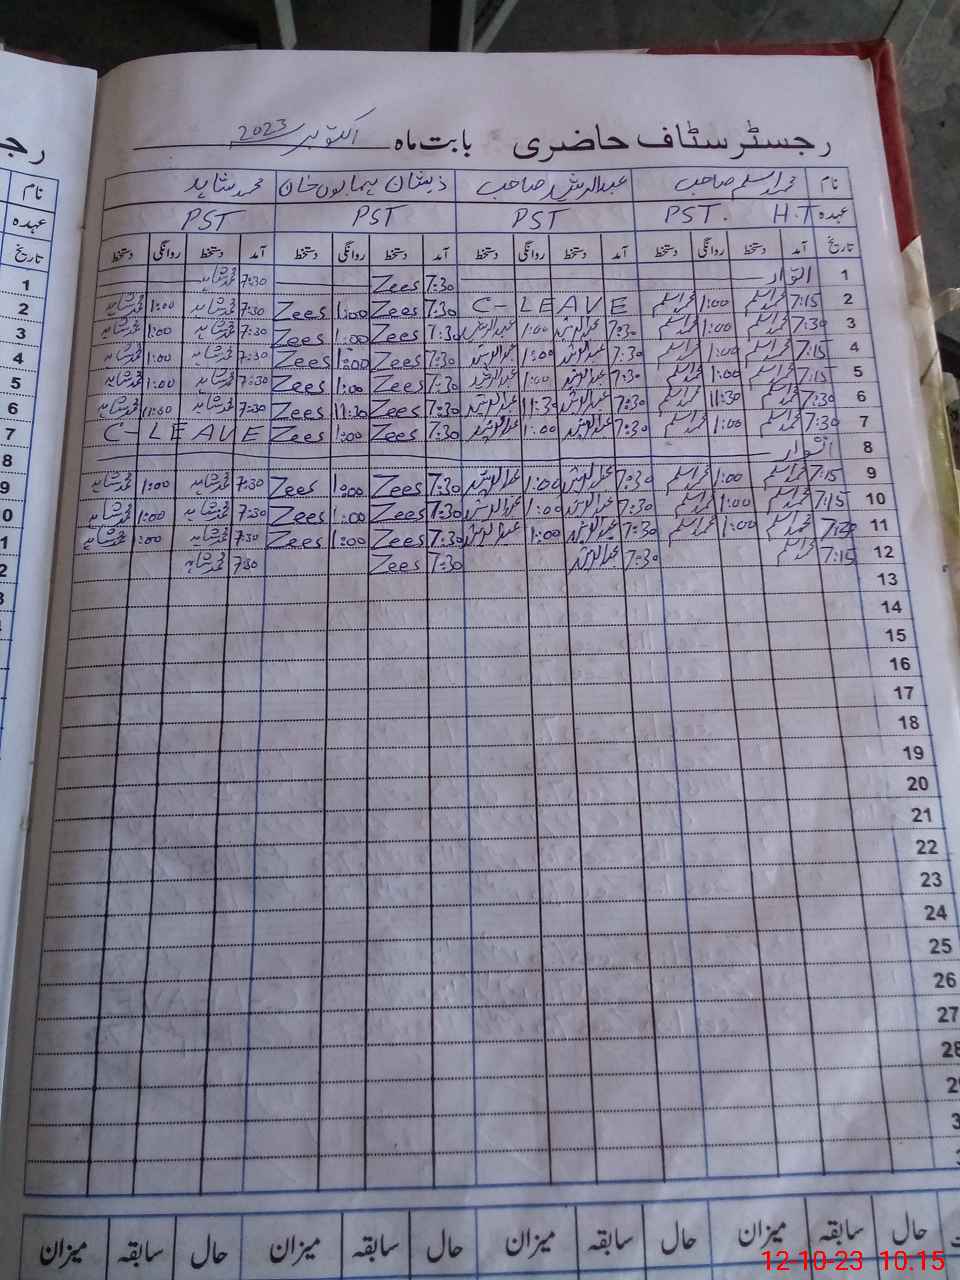 رجسٹر سٹاف حاضری بابت ماہ اکتوبر 2023
نام محمد اسلم صاحب عبدالرشید صاحب ذیشان ہمایوں خان محمد شاہد
عہدہ H.T PST. PST PST PST
تاریخ آمد دستخط روانگی دستخط آمد دستخط روانگی دستخط آمد دستخط روانگی دستخط آمد دستخط روانگی دستخط
1 اتوار 7:30 Zees 7:30 محمد شاہد
2 7:15 محمد اسلم 1:00 محمد اسلم C-LEAVE 7:30 Zees 1:00 Zees 7:30 محمد شاہد 1:00 محمد شاہد
3 7:30 محمد اسلم 1:00 محمد اسلم 7:30 عبدالرشید 1:00 عبدالرشید 7:30 Zees 1:00 Zees 7:30 محمد شاہد 1:00 محمد شاہد
4 7:15 محمد اسلم 1:00 محمد اسلم 7:30 عبدالرشید 1:00 عبدالرشید 7:30 Zees 1:00 Zees 7:30 محمد شاہد 1:00 محمد شاہد
5 7:15 محمد اسلم 1:00 محمد اسلم 7:30 عبدالرشید 1:00 عبدالرشید 7:30 Zees 1:00 Zees 7:30 محمد شاہد 1:00 محمد شاہد
6 7:30 محمد اسلم 11:30 محمد اسلم 7:30 عبدالرشید 11:30 عبدالرشید 7:30 Zees 11:30 Zees 7:30 محمد شاہد 11:30 محمد شاہد
7 7:30 محمد اسلم 1:00 محمد اسلم 7:30 عبدالرشید 1:00 عبدالرشید 7:30 Zees 1:00 Zees C-LEAVE
8 اتوار
9 7:15 محمد اسلم 1:00 محمد اسلم 7:30 عبدالرشید 1:00 عبدالرشید 7:30 Zees 1:00 Zees 7:30 محمد شاہد 1:00 محمد شاہد
10 7:15 محمد اسلم 1:00 محمد اسلم 7:30 عبدالرشید 1:00 عبدالرشید 7:30 Zees 1:00 Zees 7:30 محمد شاہد 1:00 محمد شاہد
11 محمد اسلم 1:00 محمد اسلم 7:30 عبدالرشید 1:00 عبدالرشید 7:30 Zees 1:00 Zees 7:30 محمد شاہد 1:00 محمد شاہد
12 7:15 محمد اسلم 7:30 عبدالرشید 7:30 Zees 7:30 محمد شاہد
13
14
15
16
17
18
19
20
21
22
23
24
25
26
27
28
حال سابقہ میزان حال سابقہ میزان حال سابقہ میزان حال سابقہ میزان
12-10-23 10.15
نام
عہدہ
تاریخ
1
2
3
4
5
6
7
8